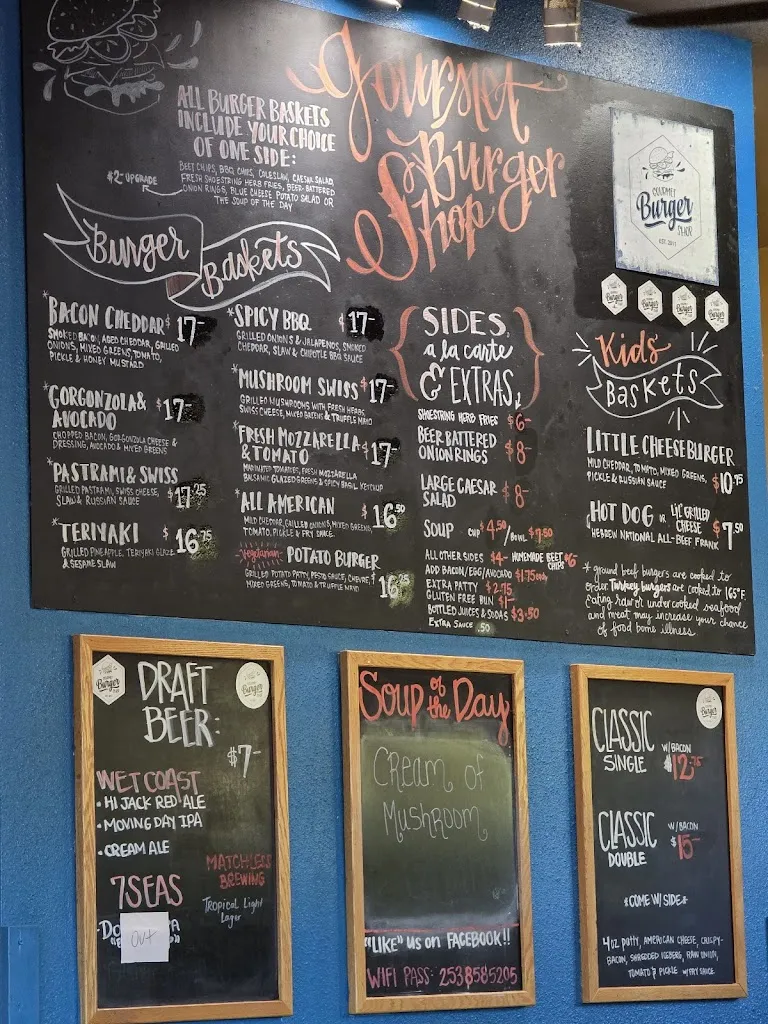 Gourmet
Burger
Shop
ALL BURGER BASKETS
INCLUDE YOUR CHOICE
OF ONE SIDE:
BEET CHIPS, BBQ CHIPS, COLESLAW, CAESAR SALAD,
FRESH SHOESTRING HERB FRIES, BEER-BATTERED
ONION RINGS, BLUE CHEESE POTATO SALAD OR
THE SOUP OF THE DAY
$2- UPGRADE
Burger
Baskets
*BACON CHEDDAR $17-
SMOKED BACON, AGED CHEDDAR, GRILLED
ONIONS, MIXED GREENS, TOMATO,
PICKLE & HONEY MUSTARD
GORGONZOLA &
AVOCADO $17-
CHOPPED BACON, GORGONZOLA CHEESE &
DRESSING, AVOCADO & MIXED GREENS
*PASTRAMI & SWISS
GRILLED PASTRAMI, SWISS CHEESE,
SLAW & RUSSIAN SAUCE $17.25
*TERIYAKI $16.75
GRILLED PINEAPPLE, TERIYAKI GLAZE
& SESAME SLAW
*SPICY BBQ $17-
GRILLED ONIONS & JALAPENOS, SMOKED
CHEDDAR, SLAW & CHIPOTLE BBQ SAUCE
*MUSHROOM SWISS $17-
GRILLED MUSHROOMS WITH FRESH HERBS,
SWISS CHEESE, MIXED GREENS & TRUFFLE MAYO
*FRESH MOZZARELLA
& TOMATO $17-
MARINATED TOMATOES, FRESH MOZZARELLA
BALSAMIC GLAZED GREENS & SPICY BASIL KETCHUP
*ALL AMERICAN $16.50
MILD CHEDDAR, GRILLED ONIONS, MIXED GREENS,
TOMATO, PICKLE & FRY SAUCE
Vegetarian POTATO BURGER
GRILLED POTATO PATTY, PESTO SAUCE, CHEVRE,
MIXED GREENS, TOMATO & TRUFFLE MAYO $16.25
SIDES
a la carte
& EXTRAS
SHOESTRING HERB FRIES $6-
BEER BATTERED
ONION RINGS $8-
LARGE CAESAR
SALAD $8-
SOUP CUP $4.50/BOWL $7.50
ALL OTHER SIDES $4- HOMEMADE BEET CHIPS $6
ADD BACON/EGG/AVOCADO $1.75 each
EXTRA PATTY $2.75
GLUTEN FREE BUN $1-
BOTTLED JUICES & SODAS $3.50
EXTRA SAUCE .50
GOURMET
Burger
SHOP
EST. 2011
Kids
Baskets
LITTLE CHEESEBURGER
MILD CHEDDAR, TOMATO, MIXED GREENS,
PICKLE & RUSSIAN SAUCE $10.75
HOT DOG OR LIL' GRILLED
CHEESE $7.50
HEBREW NATIONAL ALL-BEEF FRANK
* ground beef burgers are cooked to
order. Turkey burgers are cooked to 165°F.
Eating raw or undercooked seafood
and meat may increase your chance
of food borne illness.
DRAFT
BEER:
$7-
WET COAST
• HI JACK RED ALE
• MOVING DAY IPA
• CREAM ALE
MATCHLESS
BREWING
Tropical Light
Lager
7SEAS
OUT
Soup of the Day
Cream of
Mushroom
"LIKE" US ON FACEBOOK!!
WIFI PASS: 2538585205
CLASSIC
SINGLE
W/BACON
$12.75
CLASSIC
DOUBLE
W/BACON
$15-
*COME W/ SIDE*
4oz patty, AMERICAN CHEESE, CRISPY-
BACON, SHREDDED ICEBERG, RAW ONION,
TOMATO & PICKLE W/FRY SAUCE